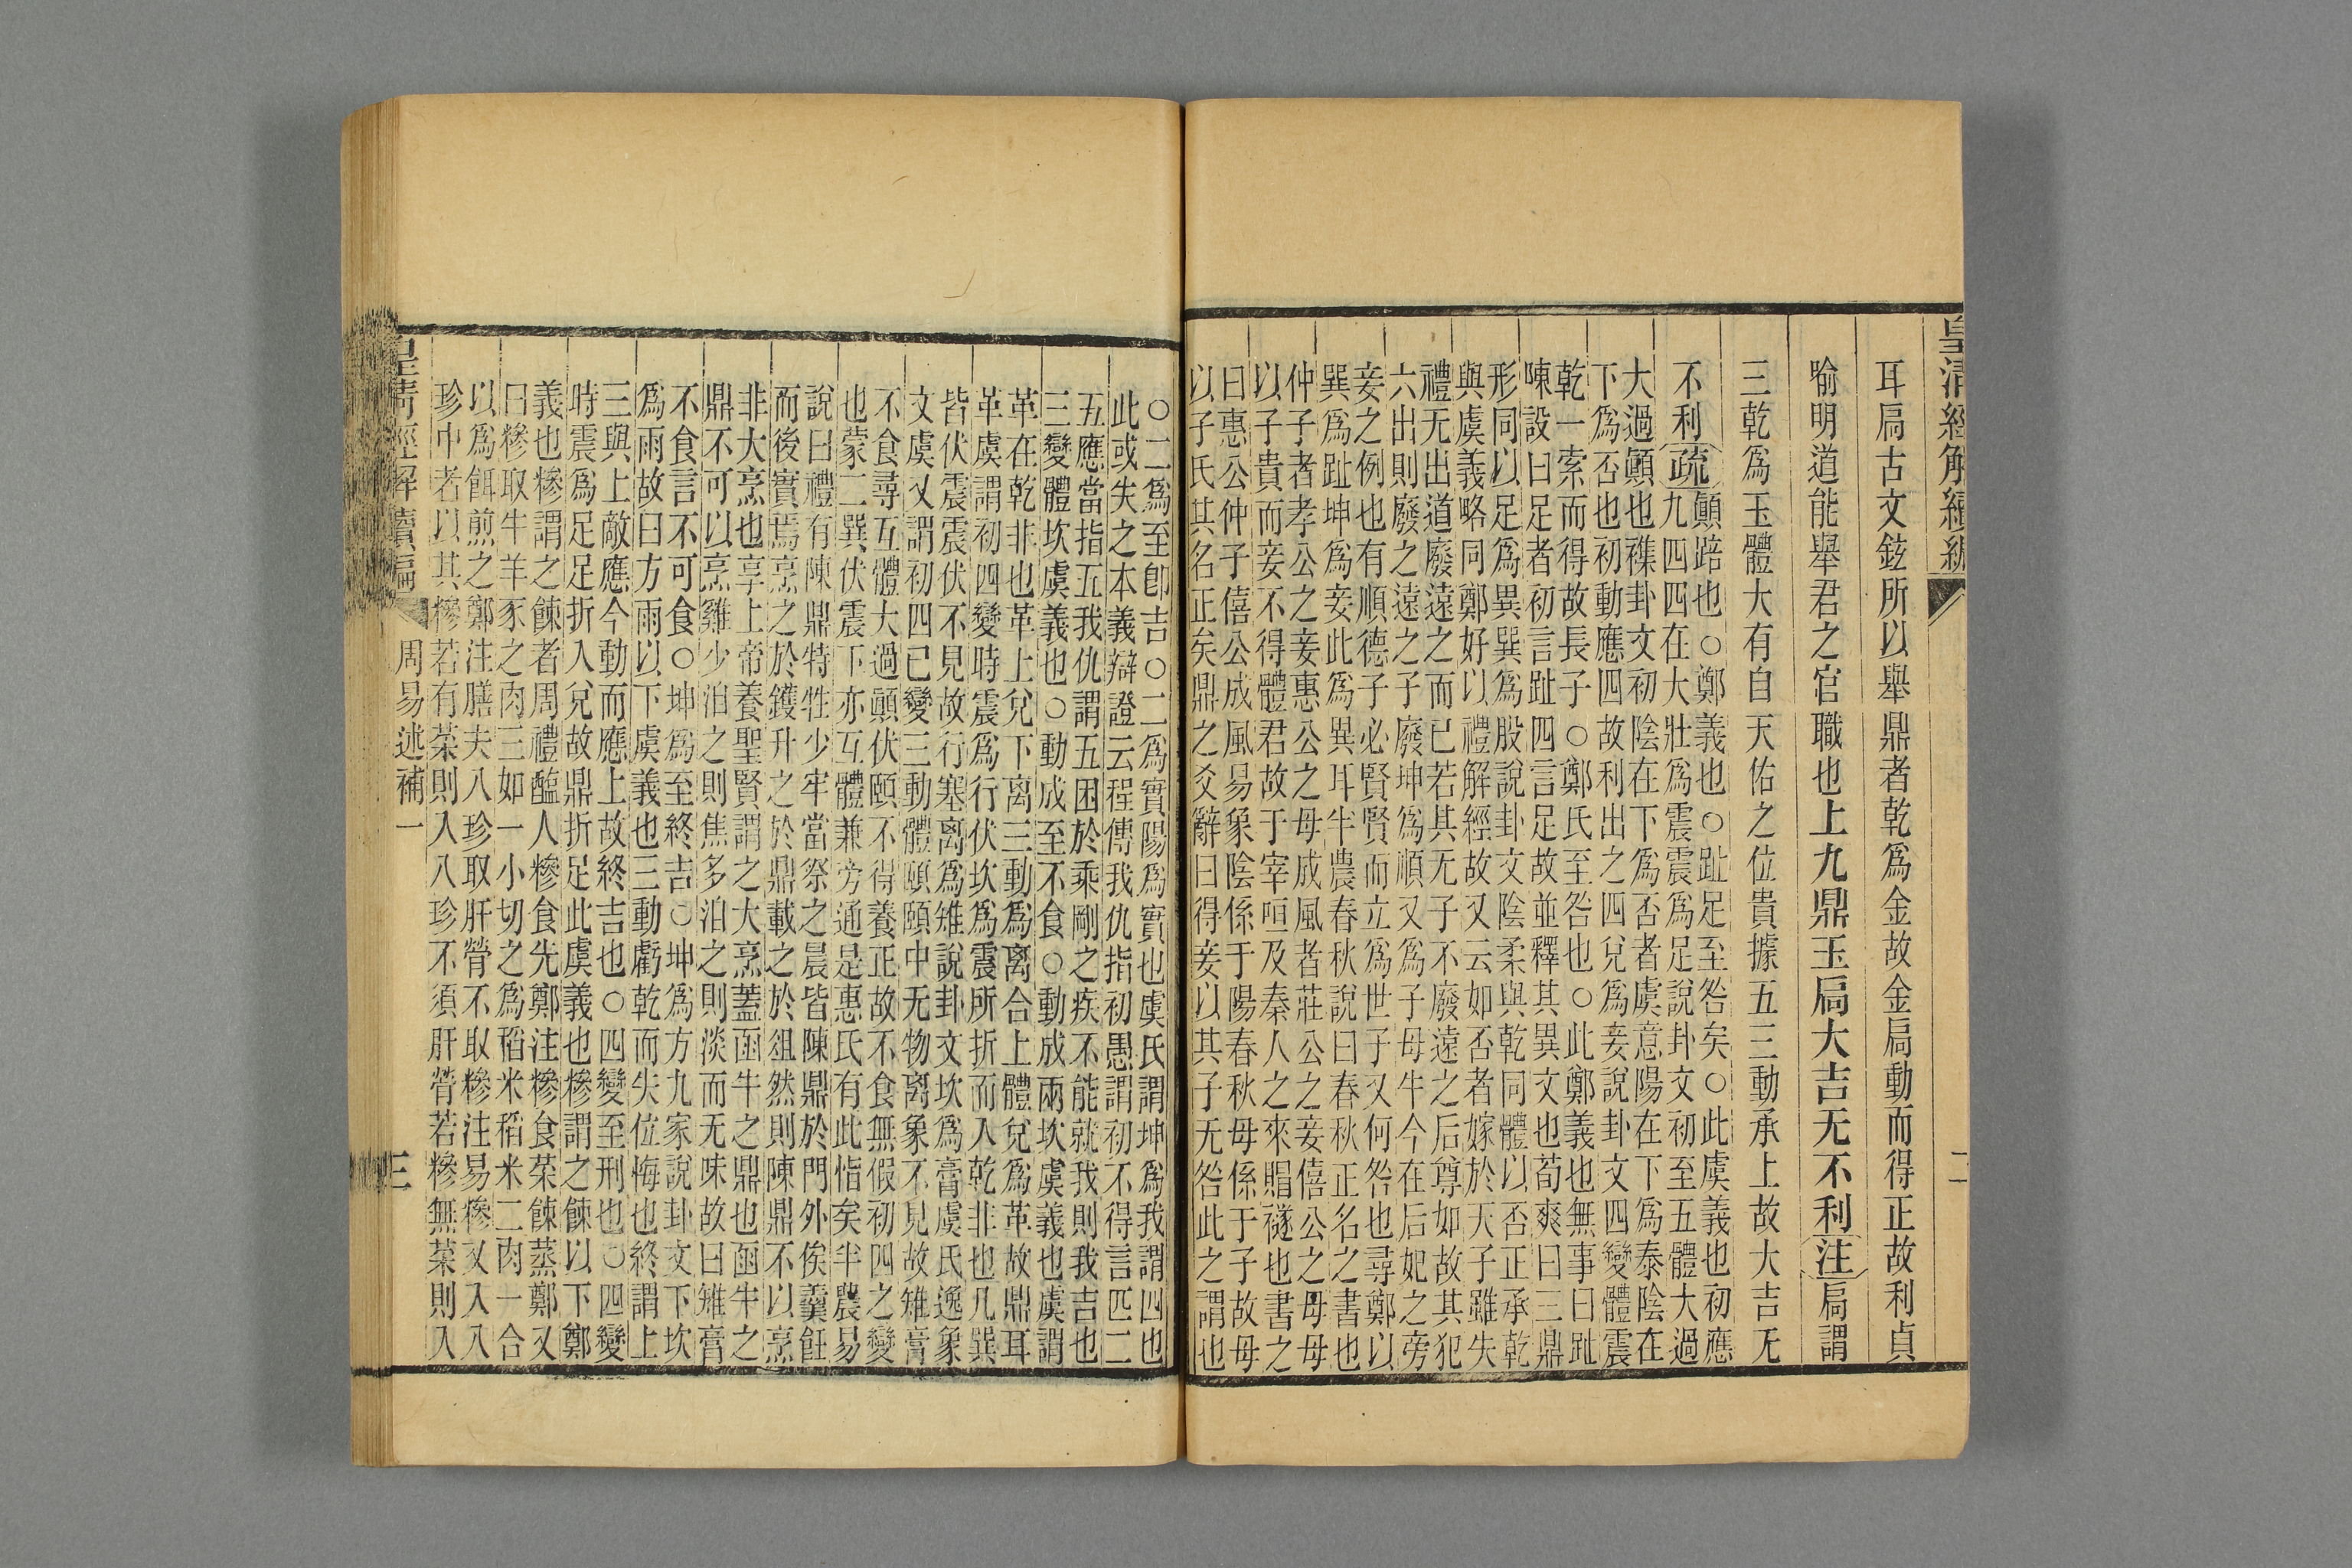 皇清經解續編
二
耳扃古文鉉所以舉鼎者乾爲金故金扃動而得正故利貞
喻明道能舉君之官職也上九鼎玉扃大吉无不利注扃謂
三乾爲玉體大有自天佑之位貴據五三動承上故大吉无
不利疏顚踣也○鄭義也○趾足至咎矣○此虞義也初應
九四四在大壯爲震震爲足說卦文初至五體大過
大過顚也襍卦文初陰在下爲否者虞意陽在下爲泰陰在
下爲否也初動應四故利出之四兌爲妾說卦文四變體震
乾一索而得故長子○鄭氏至咎也○此鄭義也無事曰趾
陳設曰足者初言趾四言足故並釋其異文也荀爽曰三鼎
形同以足爲異巽爲股說卦文陰柔與乾同體以否正承乾
與虞義略同鄭好以禮解經故又云如否者嫁於天子雖失
禮无出道廢遠之而已若其无子不廢遠之后尊如故其犯
六出則廢之遠之子廢坤爲順又爲子母牛今在后妃之旁
妾之例也有順德子必賢賢而立爲世子又何咎也尋鄭以
巽爲趾坤爲妾此爲異耳半農春秋說曰春秋正名之書也
仲子者孝公之妾惠公之母成風者莊公之妾僖公之母母
以子貴而妾不得體君故于宰咺及秦人之來賵襚也書之
曰惠公仲子僖公成風易象陰係于陽春秋母係于子故母
以子氏其名正矣鼎之爻辭曰得妾以其子无咎此之謂也
○二爲至卽吉○二爲實陽爲實也虞氏謂坤爲我謂四也
此或失之本義辯證云程傳我仇指初愚謂初不得言匹二
五應當指五我仇謂五困於乘剛之疾不能就我則我吉也
三變體坎虞義也○動成至不食○動成兩坎虞義也虞謂
革在乾非也革上兌下离三動爲离合上體兌爲革故鼎耳
革虞謂初四變時震爲行伏坎爲震所折而入乾非也凡巽
皆伏震震伏不見故行塞离爲雉說卦文坎爲膏虞氏逸象
文虞又謂初四已變三動體頤頤中无物离象不見故雉膏
不食尋互體大過顚伏頤不得養正故不食無假初四之變
也蒙二巽伏震下亦互體兼旁通是惠氏有此恉矣半農易
說曰禮有陳鼎特牲少牢當祭之晨皆陳鼎於門外俟羹飪
而後實焉烹之於鑊升之於鼎載之於俎然則陳鼎不以烹
非大烹也享上帝養聖賢謂之大烹蓋函牛之鼎也函牛之
鼎不可以烹雞少洎之則焦多洎之則淡而无味故曰雉膏
不食言不可食○坤爲至終吉○坤爲方九家說卦文下坎
爲雨故曰方雨以下虞義也三動虧乾而失位悔也終謂上
三與上敵應今動而應上故終吉也○四變至刑也○四變
時震爲足足折入兌故鼎折足此虞義也糝謂之餗以下鄭
義也糝謂之餗者周禮醢人糝食先鄭注糝食菜餗蒸鄭又
曰糝取牛羊豕之肉三如一小切之爲稻米稻米二肉一合
以爲餌煎之鄭注膳夫八珍取肝膋不取糝注易糝又入八
珍中者以其糝若有菜則入八珍不須肝膋若糝無菜則入
皇清經解續編
周易述補一
三